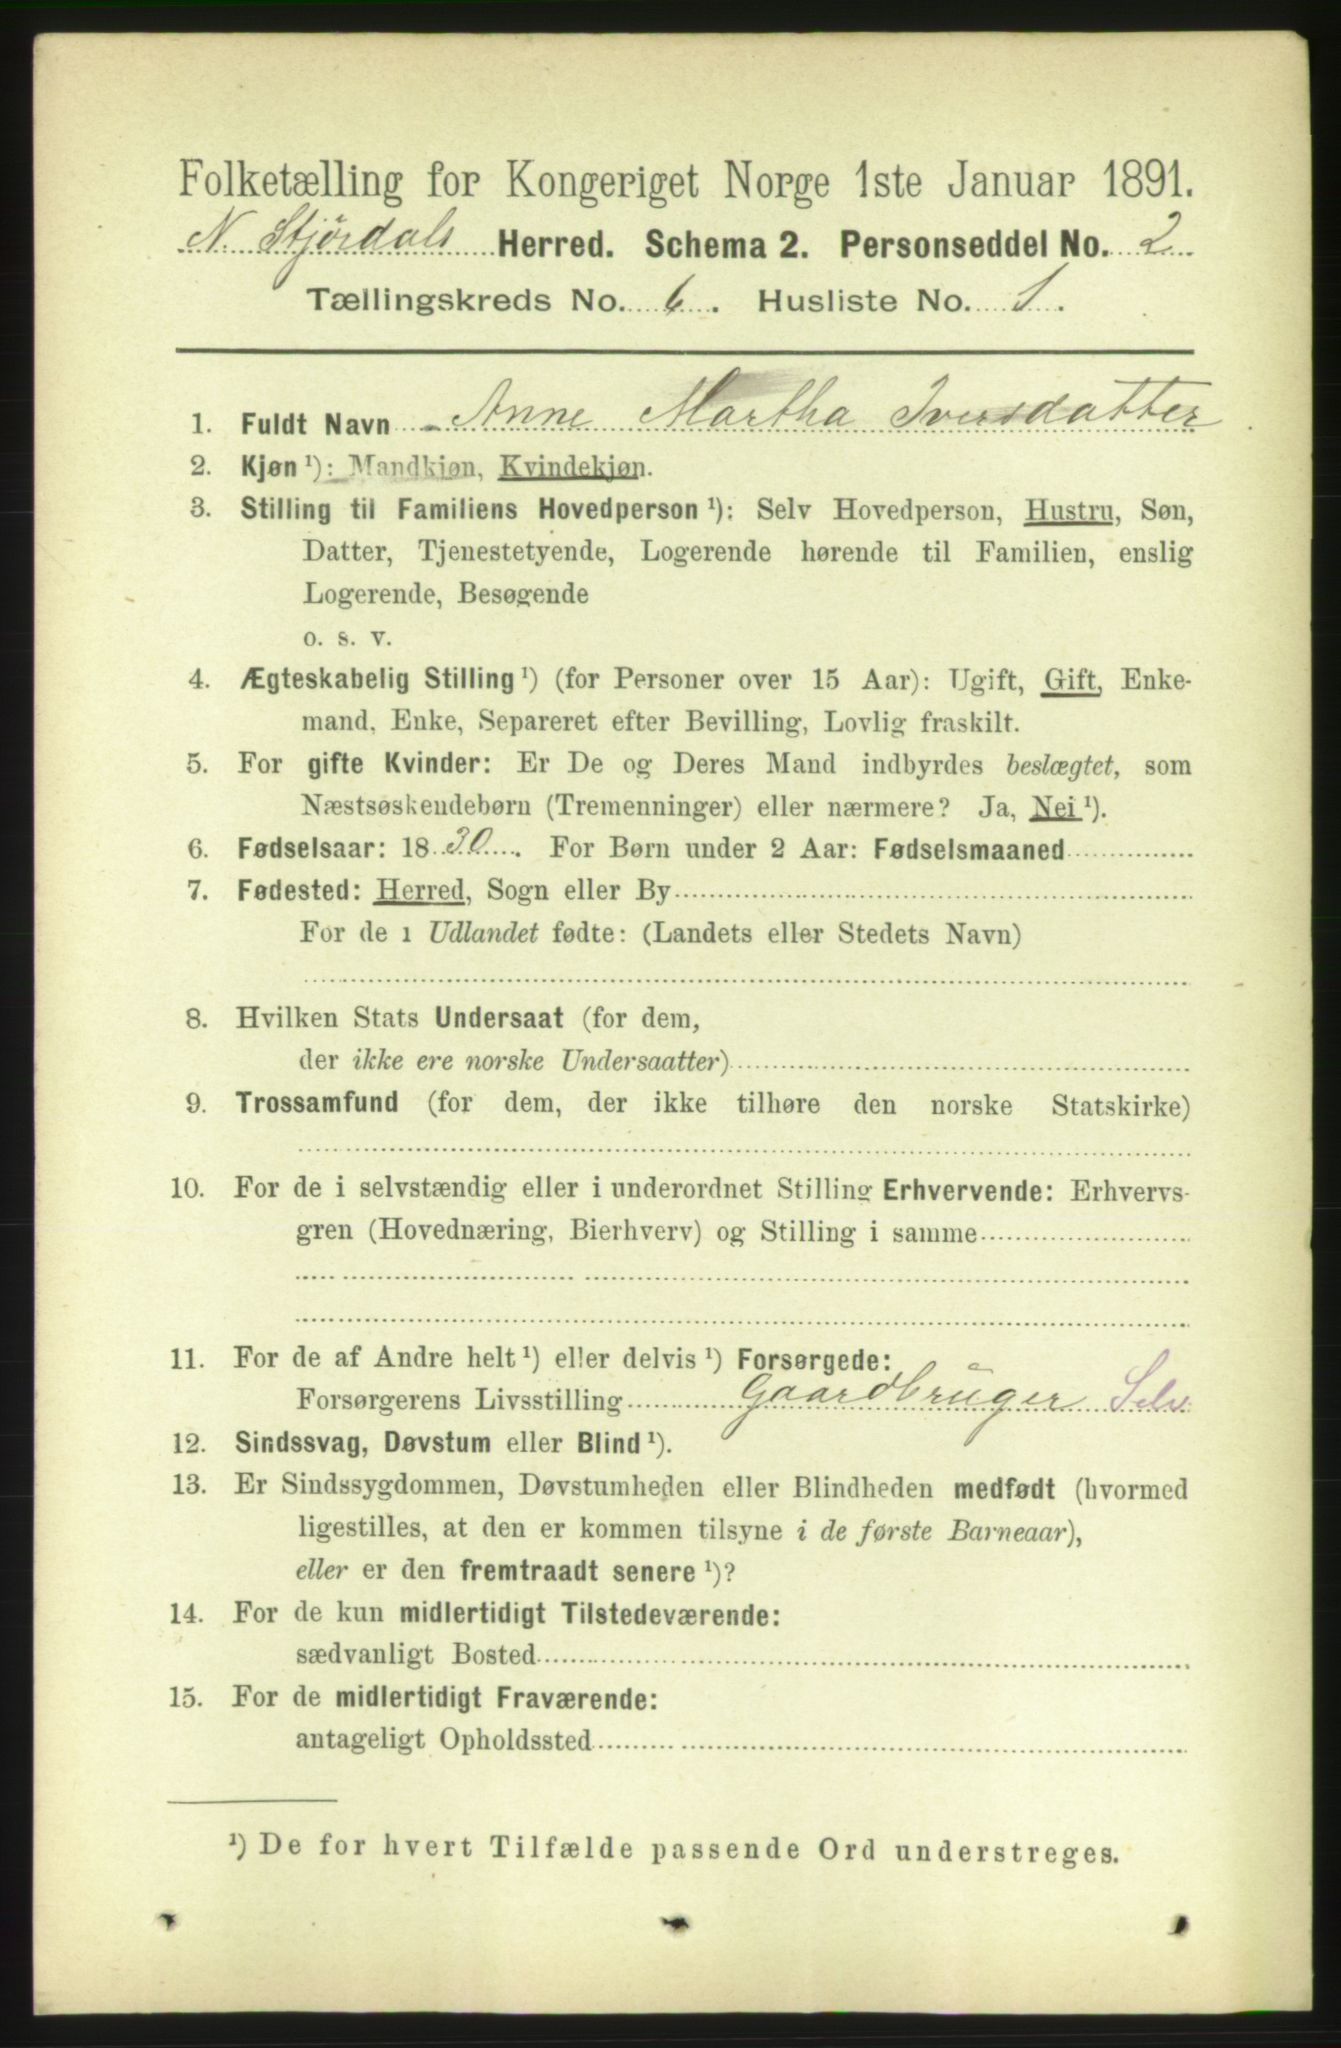 Folketælling for Kongeriget Norge 1ste Januar 1891.
N. Stjørdals Herred. Schema 2. Personseddel No. 2
Tællingskreds No. 6. Husliste No. 1.
1. Fuldt Navn Anne Martha Iversdatter
2. Kjøn ¹): Mandkjøn, Kvindekjøn.
3. Stilling til Familiens Hovedperson ¹): Selv Hovedperson, Hustru, Søn,
Datter, Tjenestetyende, Logerende hørende til Familien, enslig
Logerende, Besøgende
o. s. v.
4. Ægteskabelig Stilling ¹) (for Personer over 15 Aar): Ugift, Gift, Enke-
mand, Enke, Separeret efter Bevilling, Lovlig fraskilt.
5. For gifte Kvinder: Er De og Deres Mand indbyrdes beslægtet, som
Næstsøskendebørn (Tremenninger) eller nærmere? Ja, Nei ¹).
6. Fødselsaar: 1830. For Børn under 2 Aar: Fødselsmaaned
7. Fødested: Herred, Sogn eller By
For de i Udlandet fødte: (Landets eller Stedets Navn)
8. Hvilken Stats Undersaat (for dem,
der ikke ere norske Undersaatter)
9. Trossamfund (for dem, der ikke tilhøre den norske Statskirke)
10. For de i selvstændig eller i underordnet Stilling Erhvervende: Erhvervs-
gren (Hovednæring, Bierhverv) og Stilling i samme
11. For de af Andre helt ¹) eller delvis ¹) Forsørgede:
Forsørgerens Livsstilling Gaardbruger Selv
12. Sindssvag, Døvstum eller Blind ¹).
13. Er Sindssygdommen, Døvstumheden eller Blindheden medfødt (hvormed
ligestilles, at den er kommen tilsyne i de første Barneaar),
eller er den fremtraadt senere ¹)?
14. For de kun midlertidigt Tilstedeværende:
sædvanligt Bosted
15. For de midlertidigt Fraværende:
antageligt Opholdssted
¹) De for hvert Tilfælde passende Ord understreges.